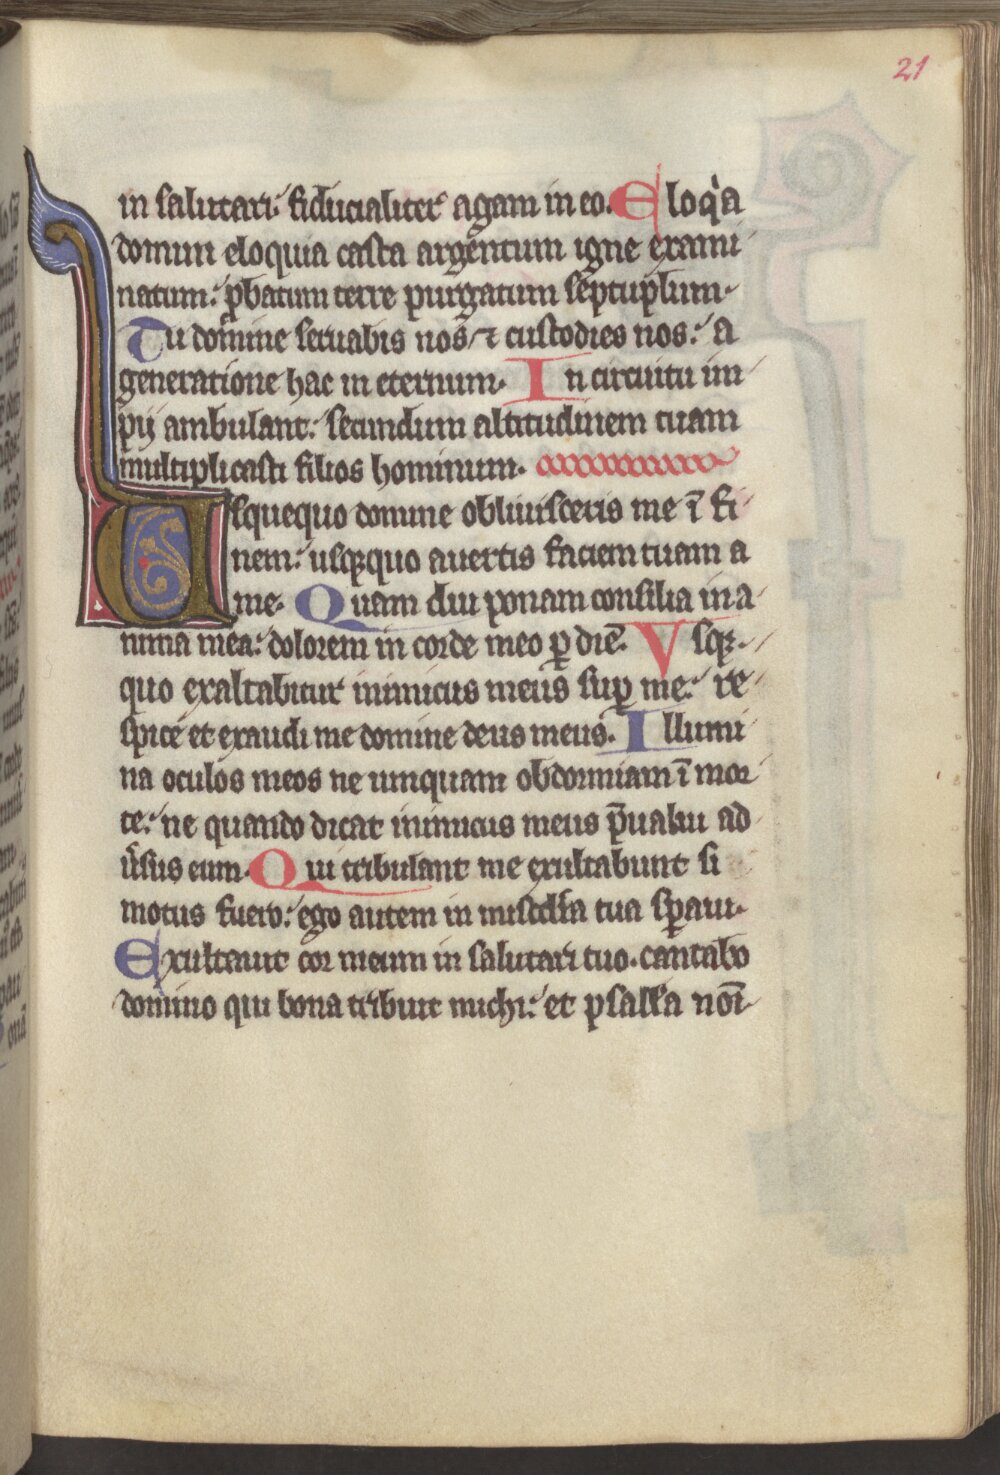 21
in salutari: fiducialiter agam in eo. Eloq̇a
domini eloquia casta argentum igne exami
natum: ꝓbatum terre purgatum septuplum.
Tu domine seruabis nos ⁊ custodies nos: a
generatione hac in eternum. In circuitu im
pij ambulant: secundum altitudinem tuam
multiplicasti filios hominum.
Usquequo domine obliuisceris me ĩ fi
nem: usqꝫquo auertis faciem tuam a
me. Quam diu ponam consilia in a
nima mea: dolorem in corde meo ꝑ diẽ. Vsqꝫ
quo exaltabitur inimicus meus suꝑ me: re
spice et exaudi me domine deus meus. Illumi
na oculos meos ne umquam obdormiam ĩ mor
te: ne quando dicat inimicus meus p̃ualui ad
ũsus eum. Qui tribulant me exultabunt si
motus fuero: ego autem in misc̃dia tua sꝑaui.
Exultauit cor meum in salutari tuo. cantabo
domino qui bona tribuit michi: et psallã noĩ